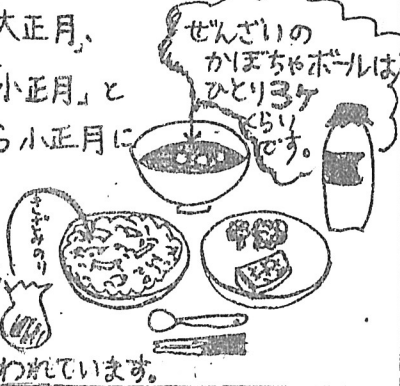 大正月」、
小正月」と
ら小正月に
ぜんざいの
かぼちゃボールは
ひとり3ケ
くらい
です。
きざみのり
われています。